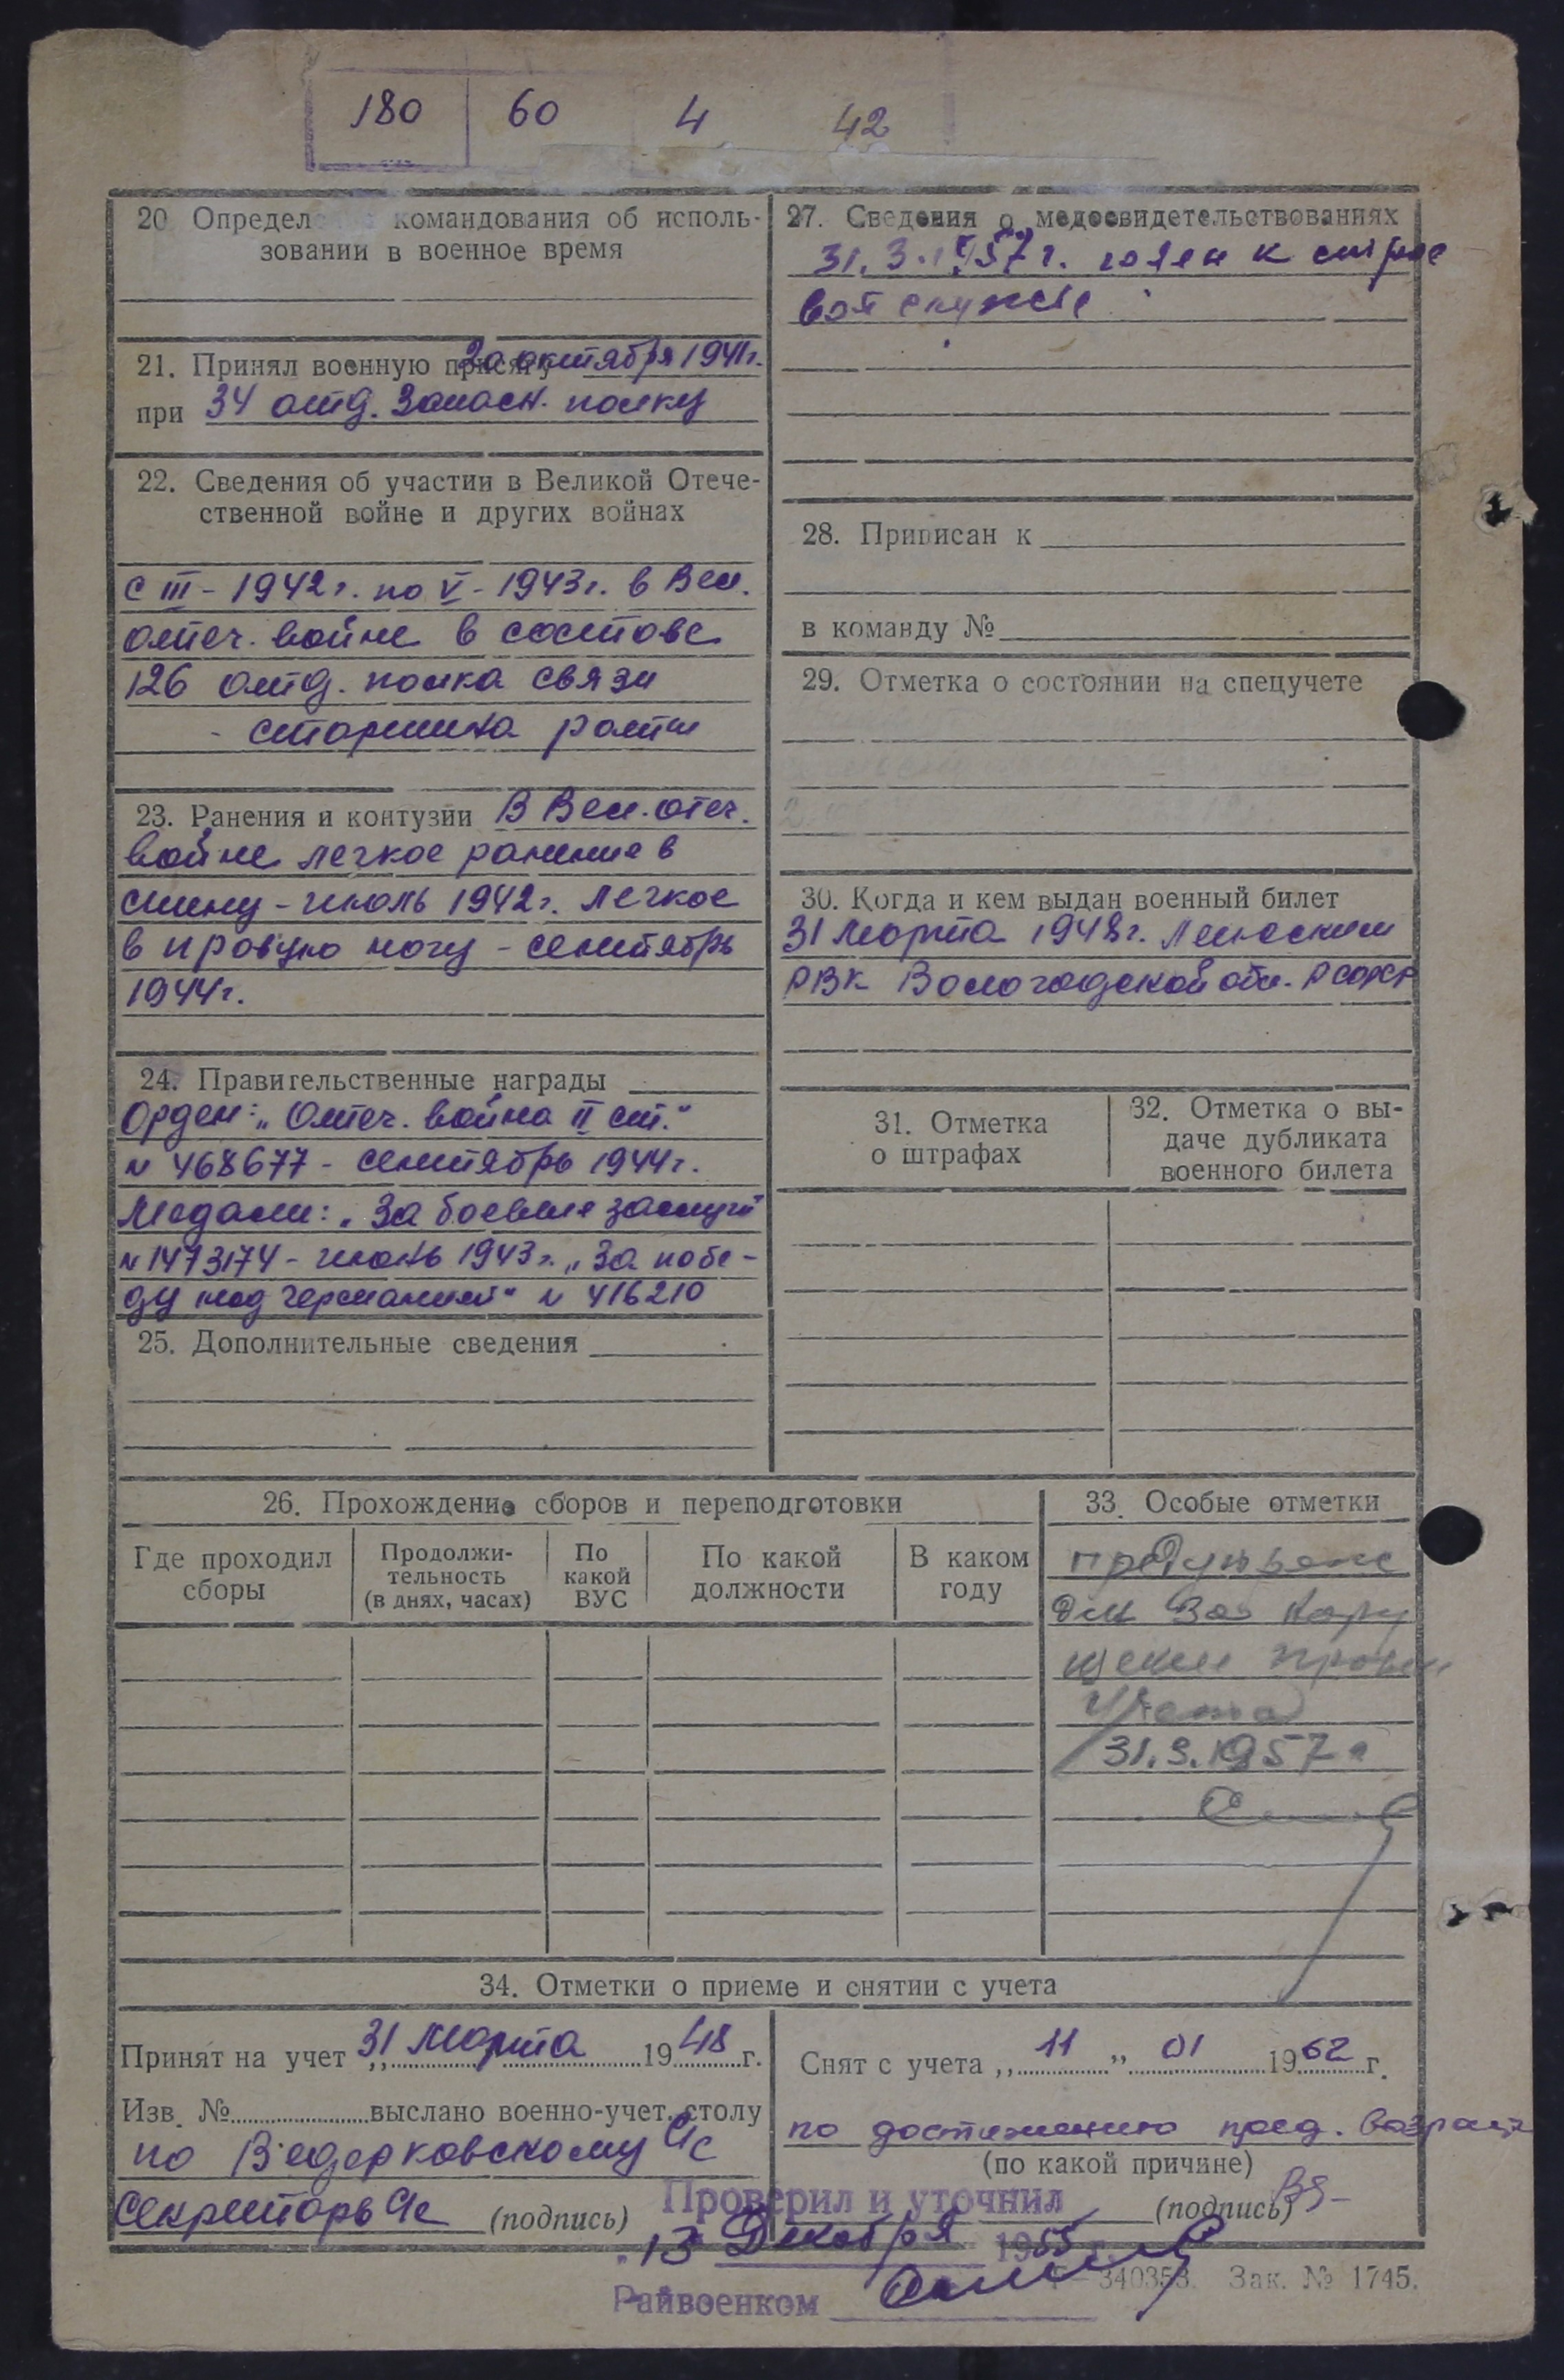 180 60 4 42
20 Определ командования об исполь-
зовании в военное время
21. Принял военную присягу 20 октября 1941г.
при 34 отд. запасн. полку
22. Сведения об участии в Великой Отече-
ственной войне и других войнах
с III - 1942г. по V - 1943г. в Вел.
отеч. войне в составе
126 отд. полка связи
- старшина роты
23. Ранения и контузии В Вел. отеч.
войне легкое ранение в
спину - июль 1942г. легкое
в правую ногу - сентябрь
1944г.
24. Правительственные награды
Орден: „Отеч. война II ст."
№ 468677 - сентябрь 1944г.
Медали: „За боевые заслуги"
№ 1473174 - июнь 1943г. „За побе-
ду над Германией" № 416210
25. Дополнительные сведения
27. Сведения о медосвидетельствованиях
31.3.1957г. годен к строе
вой службе
28. Приписан к
в команду №
29. Отметка о состоянии на спецучете
30. Когда и кем выдан военный билет
31 марта 1948г.
РВК Вологодской обл. РСФСР
31. Отметка
о штрафах
32. Отметка о вы-
даче дубликата
военного билета
26. Прохождение сборов и переподготовки
Где проходил
сборы
Продолжи-
тельность
(в днях, часах)
По
какой
ВУС
По какой
должности
В каком
году
33. Особые отметки
предупрежс
ден за нару
щении правил
учета
31.3.1957г
34. Отметки о приеме и снятии с учета
Принят на учет „31 марта 1948 г.
Изв. № выслано военно-учет. столу
по Ведерковскому с/с
Секретарь с/с (подпись)
Снят с учета „11" 01 1962 г.
по достижению пред. возраст
(по какой причине)
(подпись)
Проверил и уточнил
"13 Декабря 1955 г.
Райвоенком
Г-340353. Зак. № 1745.